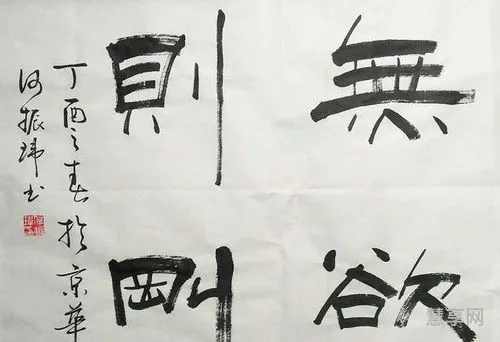 無欲
則剛
丁酉之春於京華
何振瑋书
慧享网